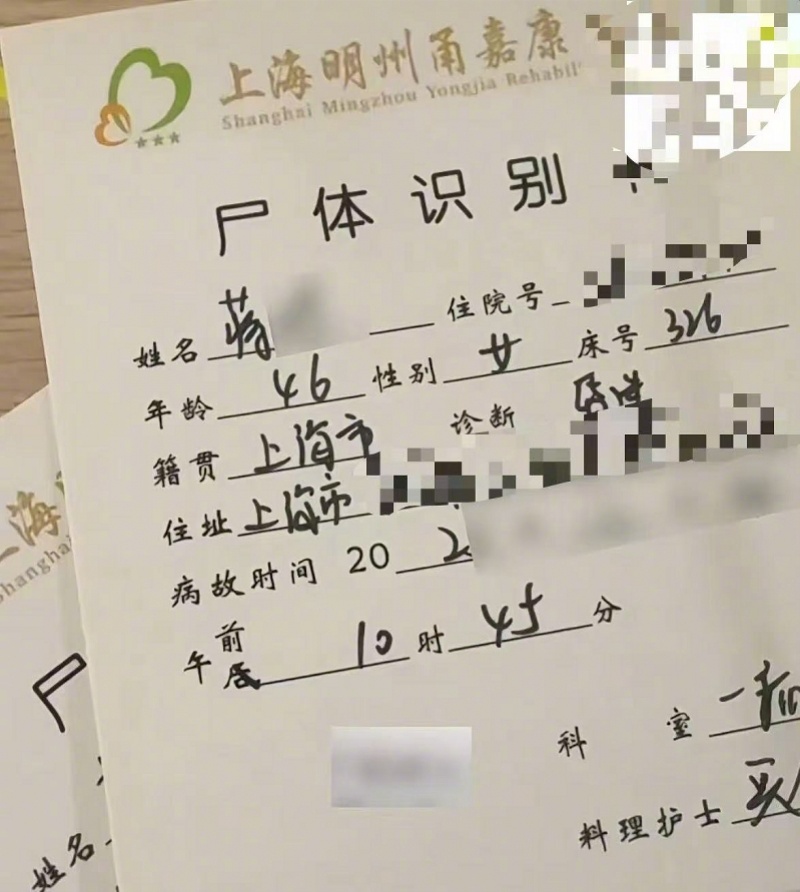 上海明州甬嘉康
Shanghai Mingzhou Yongjia Rehabil
尸体识别
姓名 蒋 住院号
年龄 46 性别 女 床号 326
籍贯 上海市 诊断
住址 上海市
病故时间 20 2
午 前 后 10 时 45 分
科室
料理护士
上海
Shanghai
尸
姓名